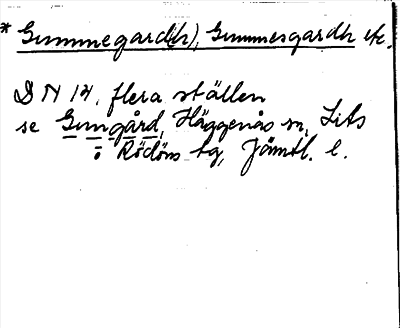 * Gummegard(h), Gummesgardh etc.
DN 14, flera ställen
se Gumgård, Häggenås sn, Lits
o Rödöns tg, Jämtl. l.